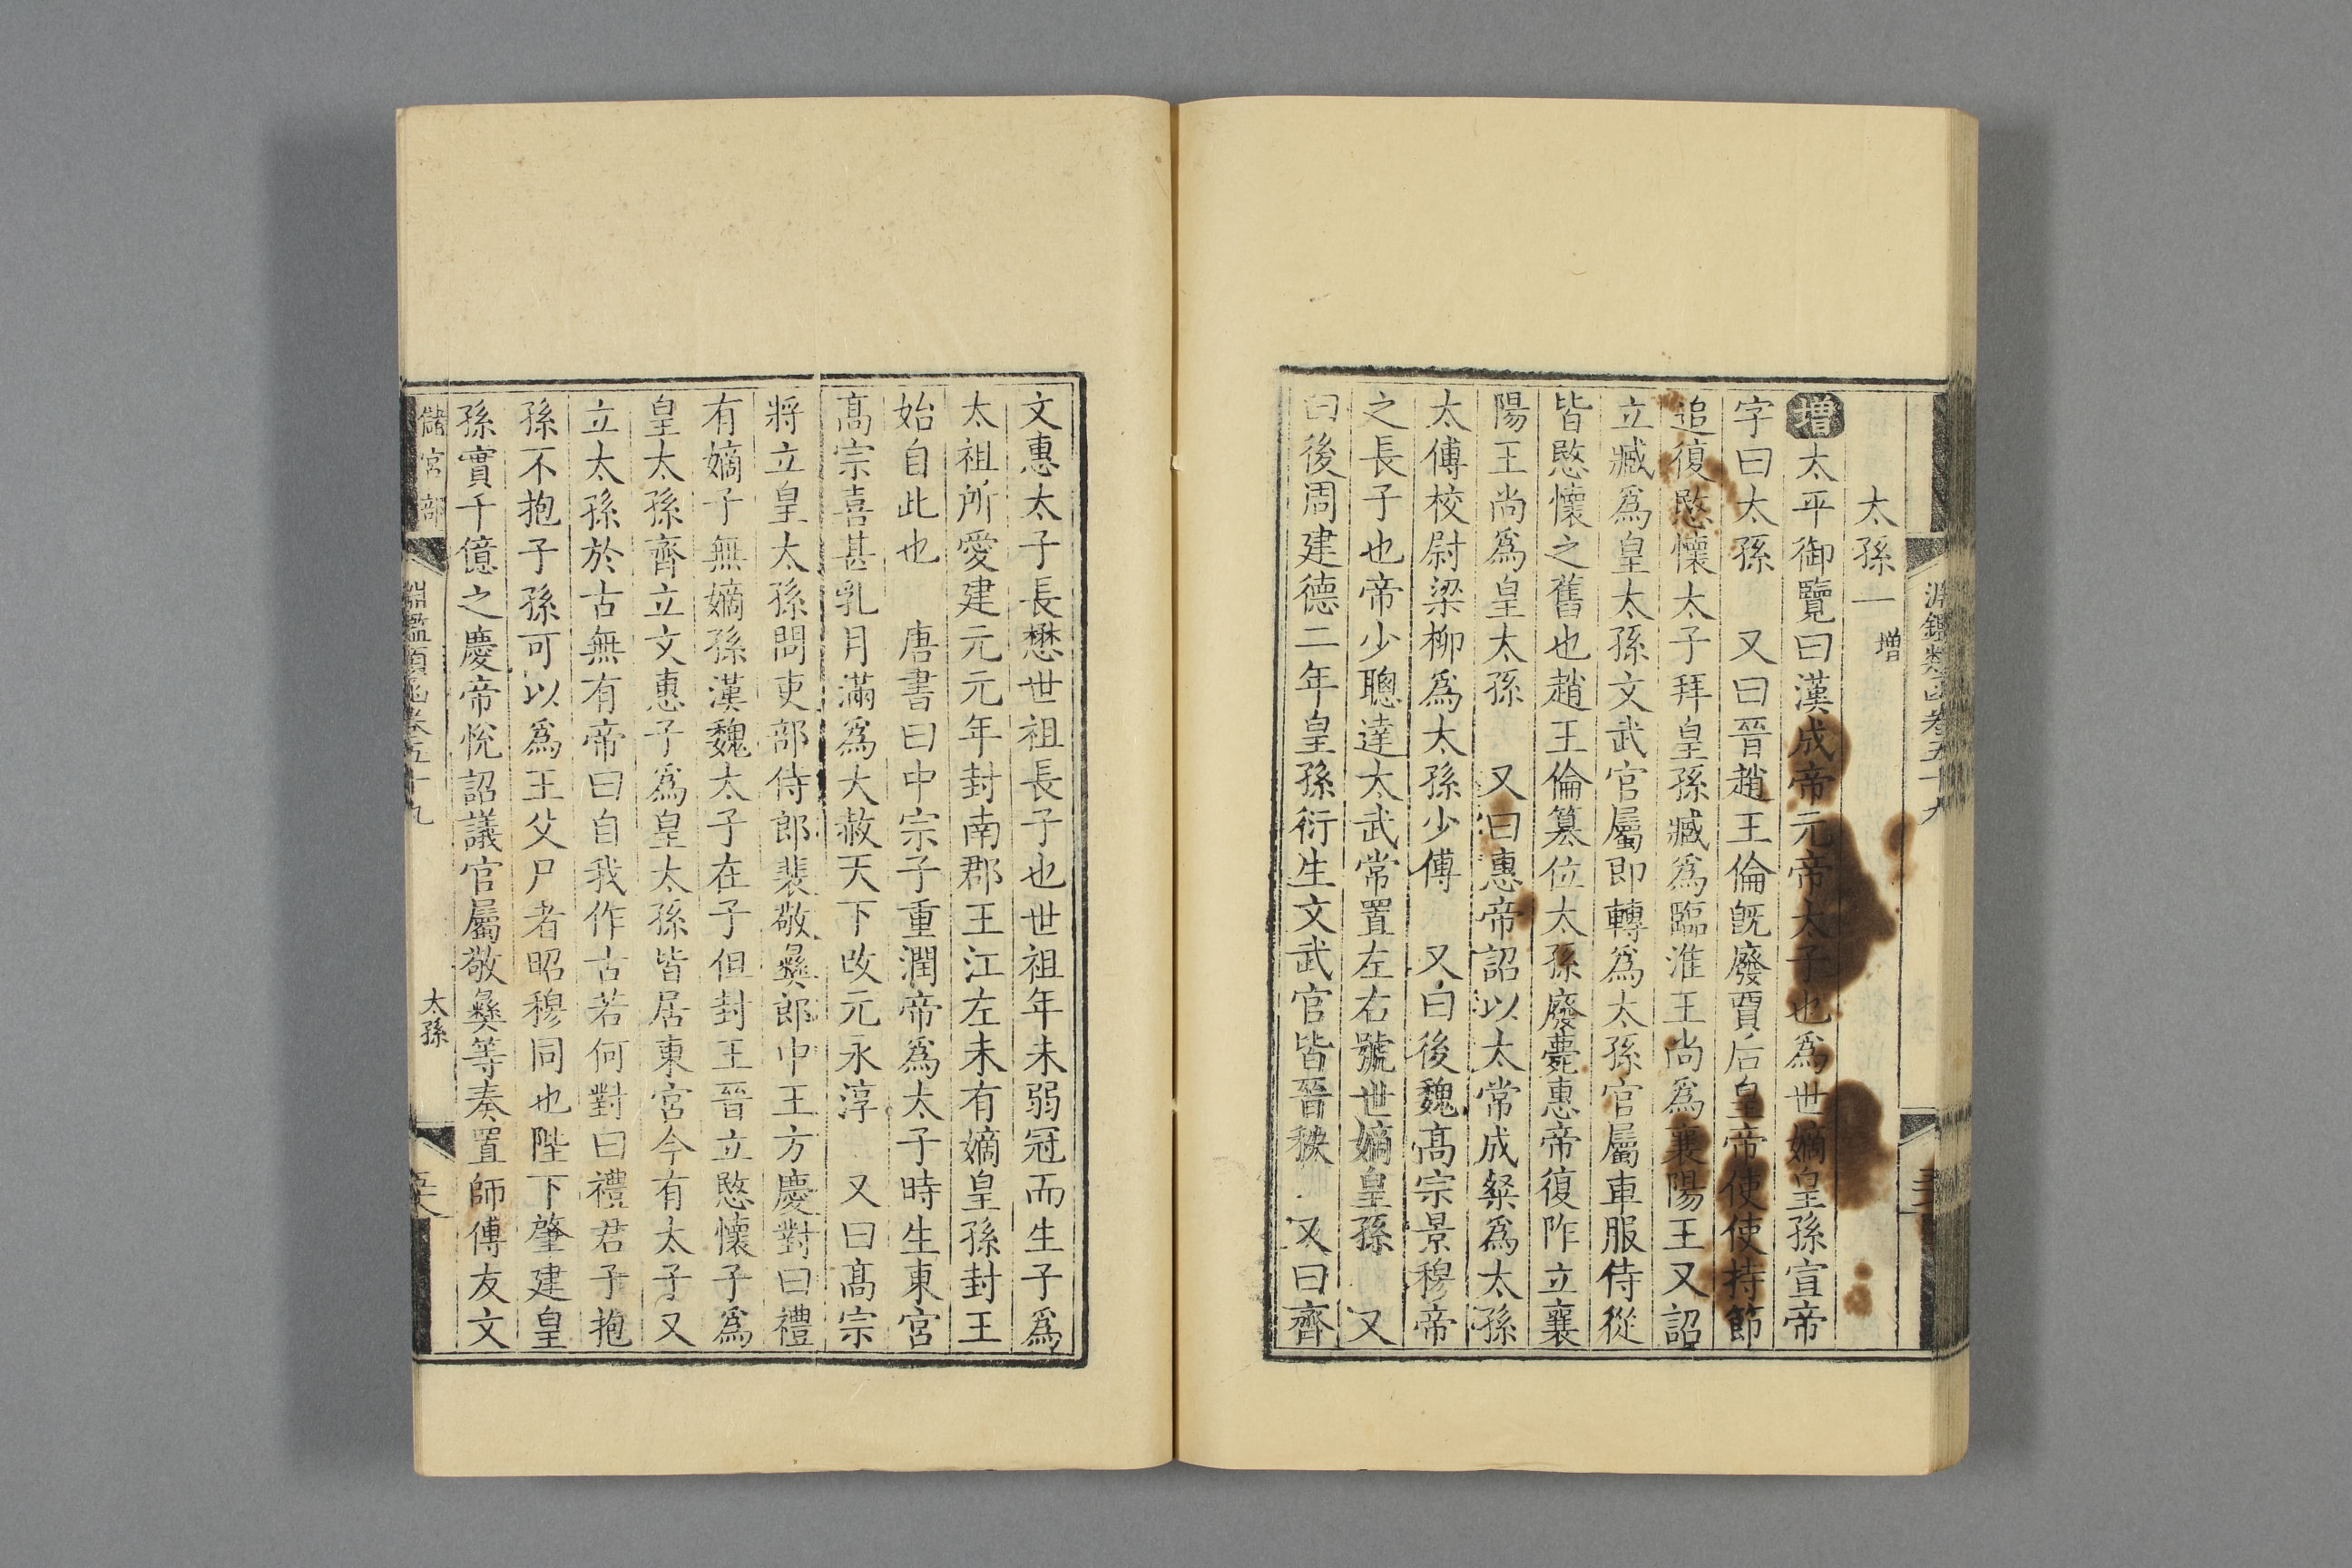 太孫一 增
增太平御覽曰漢成帝元帝太子也為世嫡皇孫宣帝
字曰太孫 又曰晉趙王倫旣廢賈后皇帝使使持節
追復愍懷太子拜皇孫臧為臨淮王尚為襄陽王又詔
立臧為皇太孫文武官屬即轉為太孫官屬車服侍從
皆愍懷之舊也趙王倫篡位太孫廢薨惠帝復阼立襄
陽王尚為皇太孫 又曰惠帝詔以太常成粲為太孫
太傅校尉梁柳為太孫少傅 又曰後魏髙宗景穆帝
之長子也帝少聰達太武常置左右號世嫡皇孫 又
曰後周建德二年皇孫衍生文武官皆晉秩 又曰齊
文惠太子長懋世祖長子也世祖年未弱冠而生子為
太祖所愛建元元年封南郡王江左未有嫡皇孫封王
始自此也 唐書曰中宗子重潤帝為太子時生東宮
髙宗喜甚乳月滿為大赦天下改元永淳 又曰髙宗
將立皇太孫問吏部侍郎裴敬彝郎中王方慶對曰禮
有嫡子無嫡孫漢魏太子在子但封王晉立愍懷子為
皇太孫齊立文惠子為皇太孫皆居東宮今有太子又
立太孫於古無有帝曰自我作古若何對曰禮君子抱
孫不抱子孫可以為王父尸者昭穆同也陛下肇建皇
孫實千億之慶帝悅詔議官屬敬彝等奏置師傅友文
儲宮部 淵鑑類函卷五十九 太孫